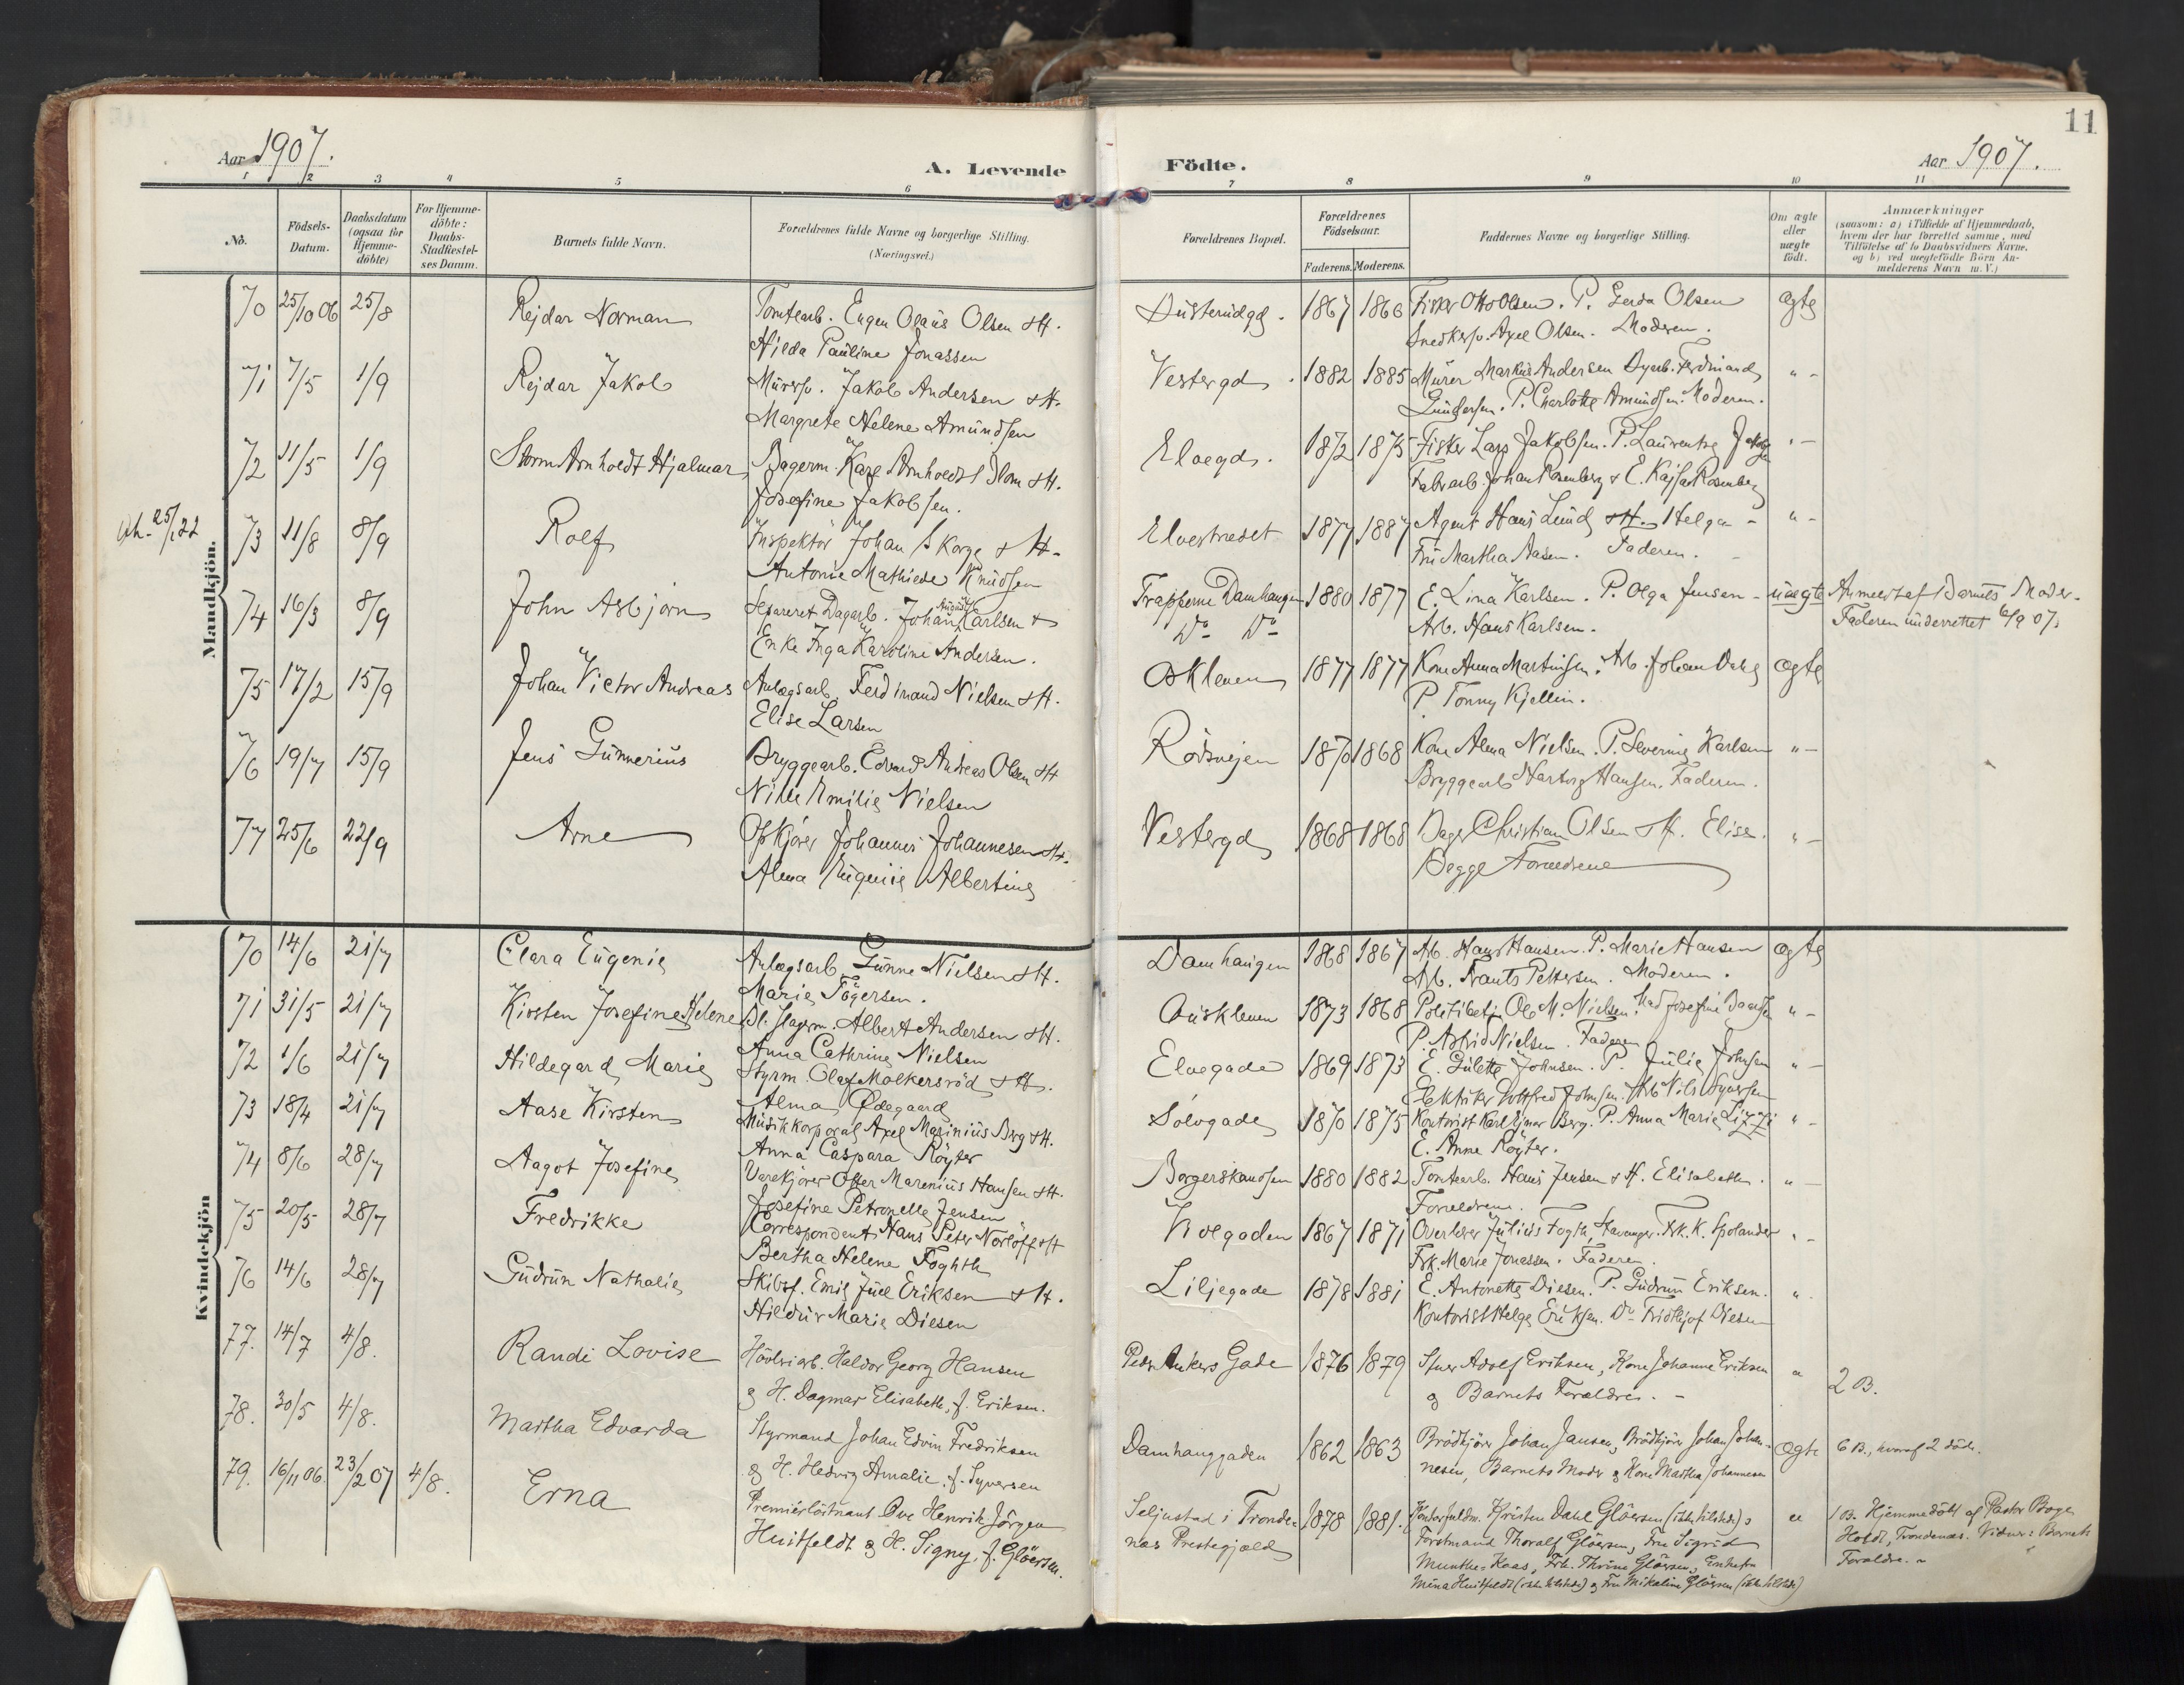 11
Aar 1907. A. Levende Födte. Aar 1907.
1 2 3 4 5 6 7 8 9 10 11
No. Födsels-Datum. Daabsdatum (ogsaa for Hjemme-döbte) For Hjemme-döbte: Daabs-Stadfæstel-ses Datum. Barnets fulde Navn. Forældrenes fulde Navne og borgerlige Stilling. (Næringsvei.) Forældrenes Bopæl. Forældrenes Födselsaar. Faderens. Moderens. Faddernes Navne og borgerlige Stilling. Om ægte eller uægte födt. Anmærkninger (saasom: a) i Tilfælde af Hjemmedaab, hvem der har forrettet samme, med Tilföielse af to Daabsvidners Navne, og b) ved uægtefödte Börn An-melderens Navn m. V.)
Mandkjön.
70 25/10 06 25/8 Rejdar Norman Tomtearb. Eugen Olaus Olsen & H. 1867 1866 Fisker Otto Olsen. P. Gerda Olsen ægte
Hilda Pauline Jonassen Snedkersv. Axel Olsen. Moderen.
71 7/5 1/9 Rejdar Jakob Murersv. Jakob Andersen & H. Vestergd. 1882 1885 Murer Markus Andersen Ferdinand " -
Margrete Helene Amundsen Gundersen. P. Charlotte Amundsen. Moderen.
72 11/5 1/9 Storm Arnholdt Hjalmar Bagerm. Karl Arnholdt Blom & H. Elvegd. 1872 1875 Fisker Lars Jakobsen. P. Laurentze Jakobsen " -
Josefine Jakobsen. Fabrarb. Johan Rosenberg & E. Kajsa Rosenberg
25/1 22 73 11/8 8/9 Rolf Inspektör Johan Skorge & H. Elvestrædet 1877 1887 Agent Hans Lund & H. Helga - " -
Antonie Mathilde Knudsen Fru Martha Aasen. Faderen.
74 16/3 8/9 John Asbjørn Separeret Dagarb. Johan August Karlsen & Trapperne Damhaugen 1880 1877 E. Lina Karlsen. P. Olga Jensen - uægte Anmeldt af Barnets Moder.
Enke Inga Karoline Andersen. Do Do Arb. Hans Karlsen. Faderen underrettet 6/9 07.
75 17/2 15/9 Johan Victor Andreas Anlægsarb. Ferdinand Nielsen & H. Oskleven 1877 1877 Kone Anna Martinsen. Arb. Johan Dahl ægte
Elise Larsen P. Tonny Kjellin.
76 19/7 15/9 Jens Gunnerius Bryggearb. Edvard Andreas Olsen & H Rödsvejen 1870 1868 Kone Alma Nielsen. P. Severine Karlsen " -
Nille Emilie Nielsen Bryggearb Hartvig Hansen. Faderen.
77 25/6 22/9 Arne Opkjörer Johannes Johannesen & H. Vestergd 1868 1868 Bager Christian Olsen & H. Elise. " -
Alma Eugenie Albertine Begge Forældrene
Kvindekjön
70 14/6 21/7 Clara Eugenie Anlægsarb. Gunne Nielsen & H. Damhaugen 1868 1867 Arb. Hans Hansen. P. Marie Hansen ægte
Marie Tögersen. Arb. Frants Pettersen. Moderen.
71 31/5 21/7 Kirsten Josefine Helene Bl.slagerm. Albert Andersen & H. Ouskleven 1873 1868 Politibetj. Ole M. Nielsen. Mad. Josefine " -
Anna Cathrine Nielsen P. Astrid Nielsen. Faderen
72 1/6 21/7 Hildegard Marie Styrm. Olaf Molkersröd & H. Elvegade 1869 1873 E. Gulette Johnsen. P. Julie Johnsen " -
Alma Ødegaard Elektriker Gottfred Johnsen. Arb Nils Syversen
73 18/4 21/7 Aase Kirsten Musikkorporal Axel Marinius Berg & H. Sölvgade 1870 1875 Kontorist Karl Ejnar Berg. P. Anna Marie Lizzi " -
Anna Caspara Röyter E. Anne Röyter.
74 8/6 28/7 Aagot Josefine Varekjörer Offer Marenius Hansen & H. Borgerskandsen 1880 1882 Tomtearb. Hans Jensen & H. Elisabeth. " -
Josefine Petronelle Jensen Forældrene.
75 20/5 28/7 Fredrikke Correspondent Hans Peter Norlöff & H Volgaden 1867 1871 Overlærer Julius Fogth, Stavanger. Frk. K. Spolander " -
Bertha Helene Foghth Frk. Marie Jonassen. Faderen.
76 14/6 28/7 Gudrun Nathalie Skibsf. Emil Juel Eriksen & H. Liljegade 1878 1881 E. Antonette Diesen. P. Gudrun Eriksen. " -
Hildur Marie Diesen Kontorist Helge Eriksen. Do Fridthjof Diesen
77. 14/7 4/8. Randi Lovise Hövleriarb. Haldor Georg Hansen Peder Ankers Gade 1876 1879 Stuer Adolf Eriksen, Kone Johanne Eriksen " 2 B.
og H. Dagmar Elisabeth, f. Eriksen. og Barnets Forældre. -
78. 30/5 4/8. Martha Edvarda Styrmand Johan Edvin Fredriksen Damhauggaden 1862 1863 Brödkjörer Johan Jansen, Brödkjörer Johan Johan- ægte 6 B., hvoraf 2 döde.
og H. Hedvig Amalie, f. Syversen nesen, Barnets Moder og Kone Martha Johannesen
79. 16/11 06. 23/2 07 4/8. Erna Premierlöitnant Ove Henrik Jörgen Seljestad i Tronde- 1878 1881. Kristen Dahl Glöersen (ikke tilstede), " 1 B. Hjemmedöbt af Pastor Boge
Huitfeldt og H. Signy, f. Glöersen. næs Prestegjæld Forstmand Thoralf Glöersen, Fru Sigrid Holdt, Trondenæs. Vidner: Barnets
Munthe-Kaas, Frk. Thrine Glöersen, Enkefru Forældre.
Mina Huitfeldt (ikke tilstede) og Fru Mikaline Glöersen (ikke tilstede)